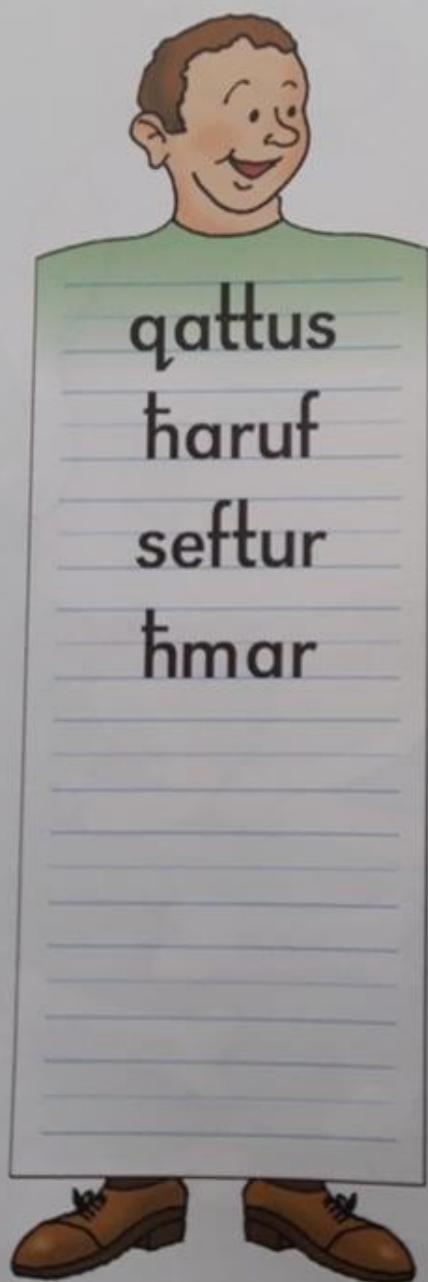 qattus
ħaruf
seftur
ħmar